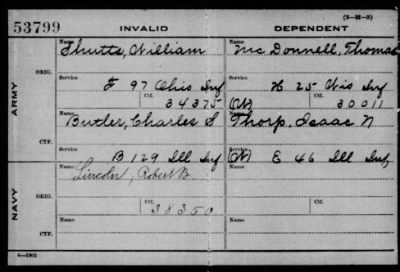 (3-H-3)
53799 INVALID DEPENDENT
Name Name
Shutts, William McDonnell, Thomas
ORIG. Service Service
F 97 Ohio Inf H 25 Wis Inf
Ctf. Ctf.
34375 (M) 30011
ARMY
Name Name
Butler, Charles S Thorp, Isaac N
CTF. Service Service
B 129 Ill Inf (M) E 46 Ill Inf
Name Name
Lincoln, Robert B.
ORIG.
Ctf. Ctf.
38350
NAVY
Name Name
CTF.